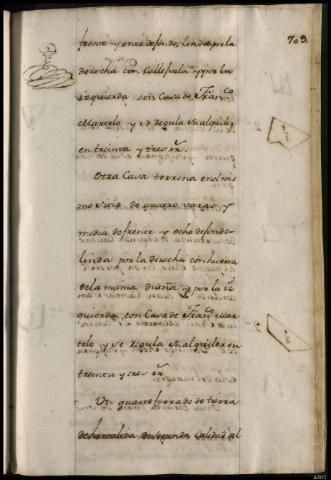 703.
frente y onze de fondo, linda por la
derecha con Calle Publica y por la
izquierda con Casa de Franco
Marcelo y se Regula su alquiler
en treinta y tres rr.
Otra Casa terrena en el mis
mo Sitio de quatro varas y
media de frente y ocho de fondo
linda por la derecha con huerta
de la misma dueña y por la iz
quierda con Casa de Franco Mar
zelo y se Regula su alquiler en
treinta y tres rr.
Un quarto forrado de tierra
de hortaliza de segunda calidad al